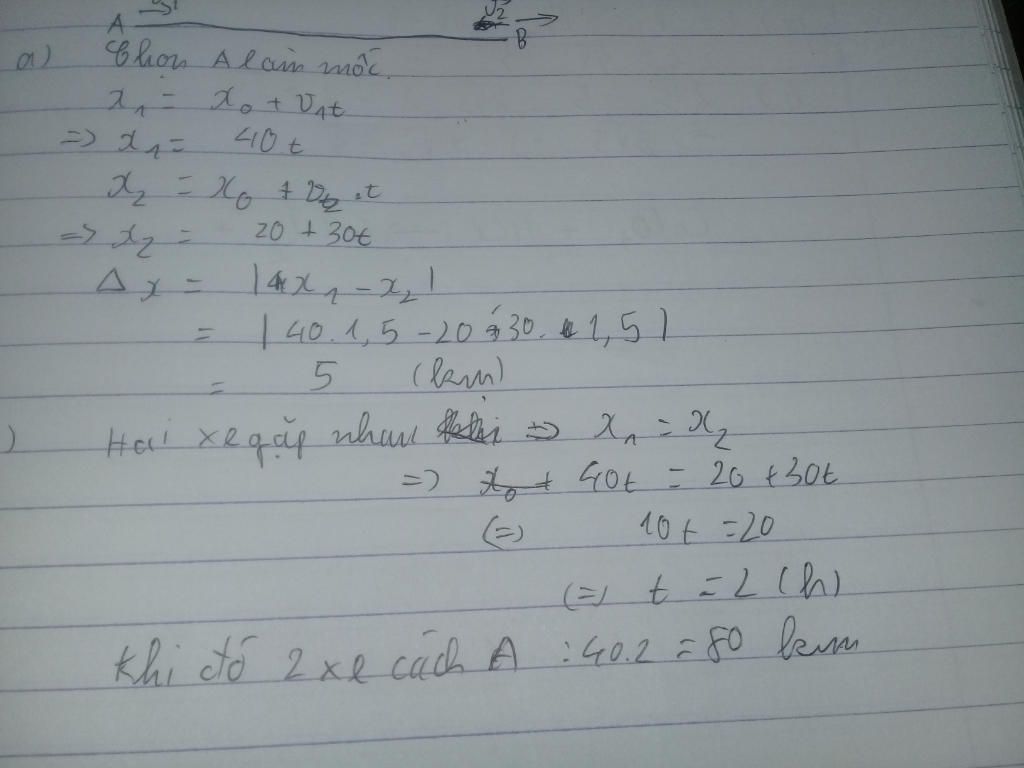 A v₂ B
a) Chọn A làm mốc.
x₁ = x₀ + v₁t
=> x₁ = 40t
x₂ = x₀ + v₂.t
=> x₂ = 20 + 30t
Δx = |x₁ - x₂|
= |40.1,5 - 20 - 30.1,5|
= 5 (km)
) Hai xe gặp nhau => x₁ = x₂
=> 40t = 20 + 30t
(=) 10t = 20
(=) t = 2 (h)
Khi đó 2 xe cách A : 40.2 = 80 km